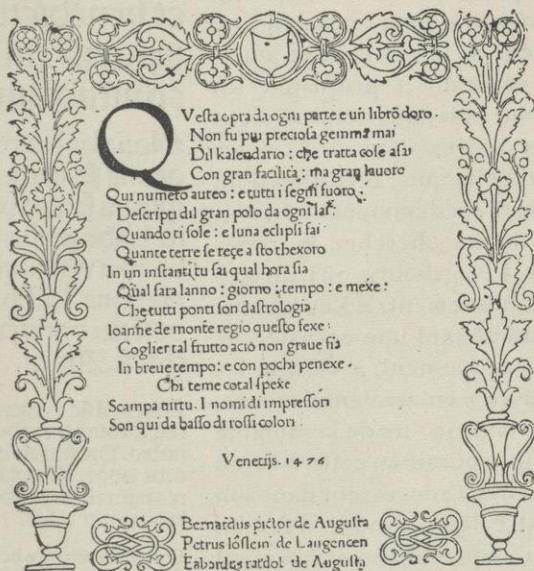 Questa opra da ogni parte e un libro doro.
Non fu piu preciosa gemma mai
Dil kalendario: che tratta cose asai
Con gran facilita: ma gran lauoro
Qui numero aureo: e tutti i segni fuoro
Descripti dil gran polo da ogni lai:
Quando ti sole: e luna eclipsi fai
Quante terre se reçe a sto thexoro
In un instanti tu sai qual hora sia
Qual sara lanno: giorno: tempo: e mexe:
Che tutti ponti son dastrologia
Ioanne de monte regio questo fexe:
Coglier tal frutto acio non graue sia
In breue tempo: e con pochi penexe.
Chi teme cotal spexe
Scampa uirtu. I nomi di impressori
Son qui da basso di rossi colori.
Venetijs. 1476
Bernardus pictor de Augusta
Petrus löslein de Langencen
Erhardus ratdolt de Augusta